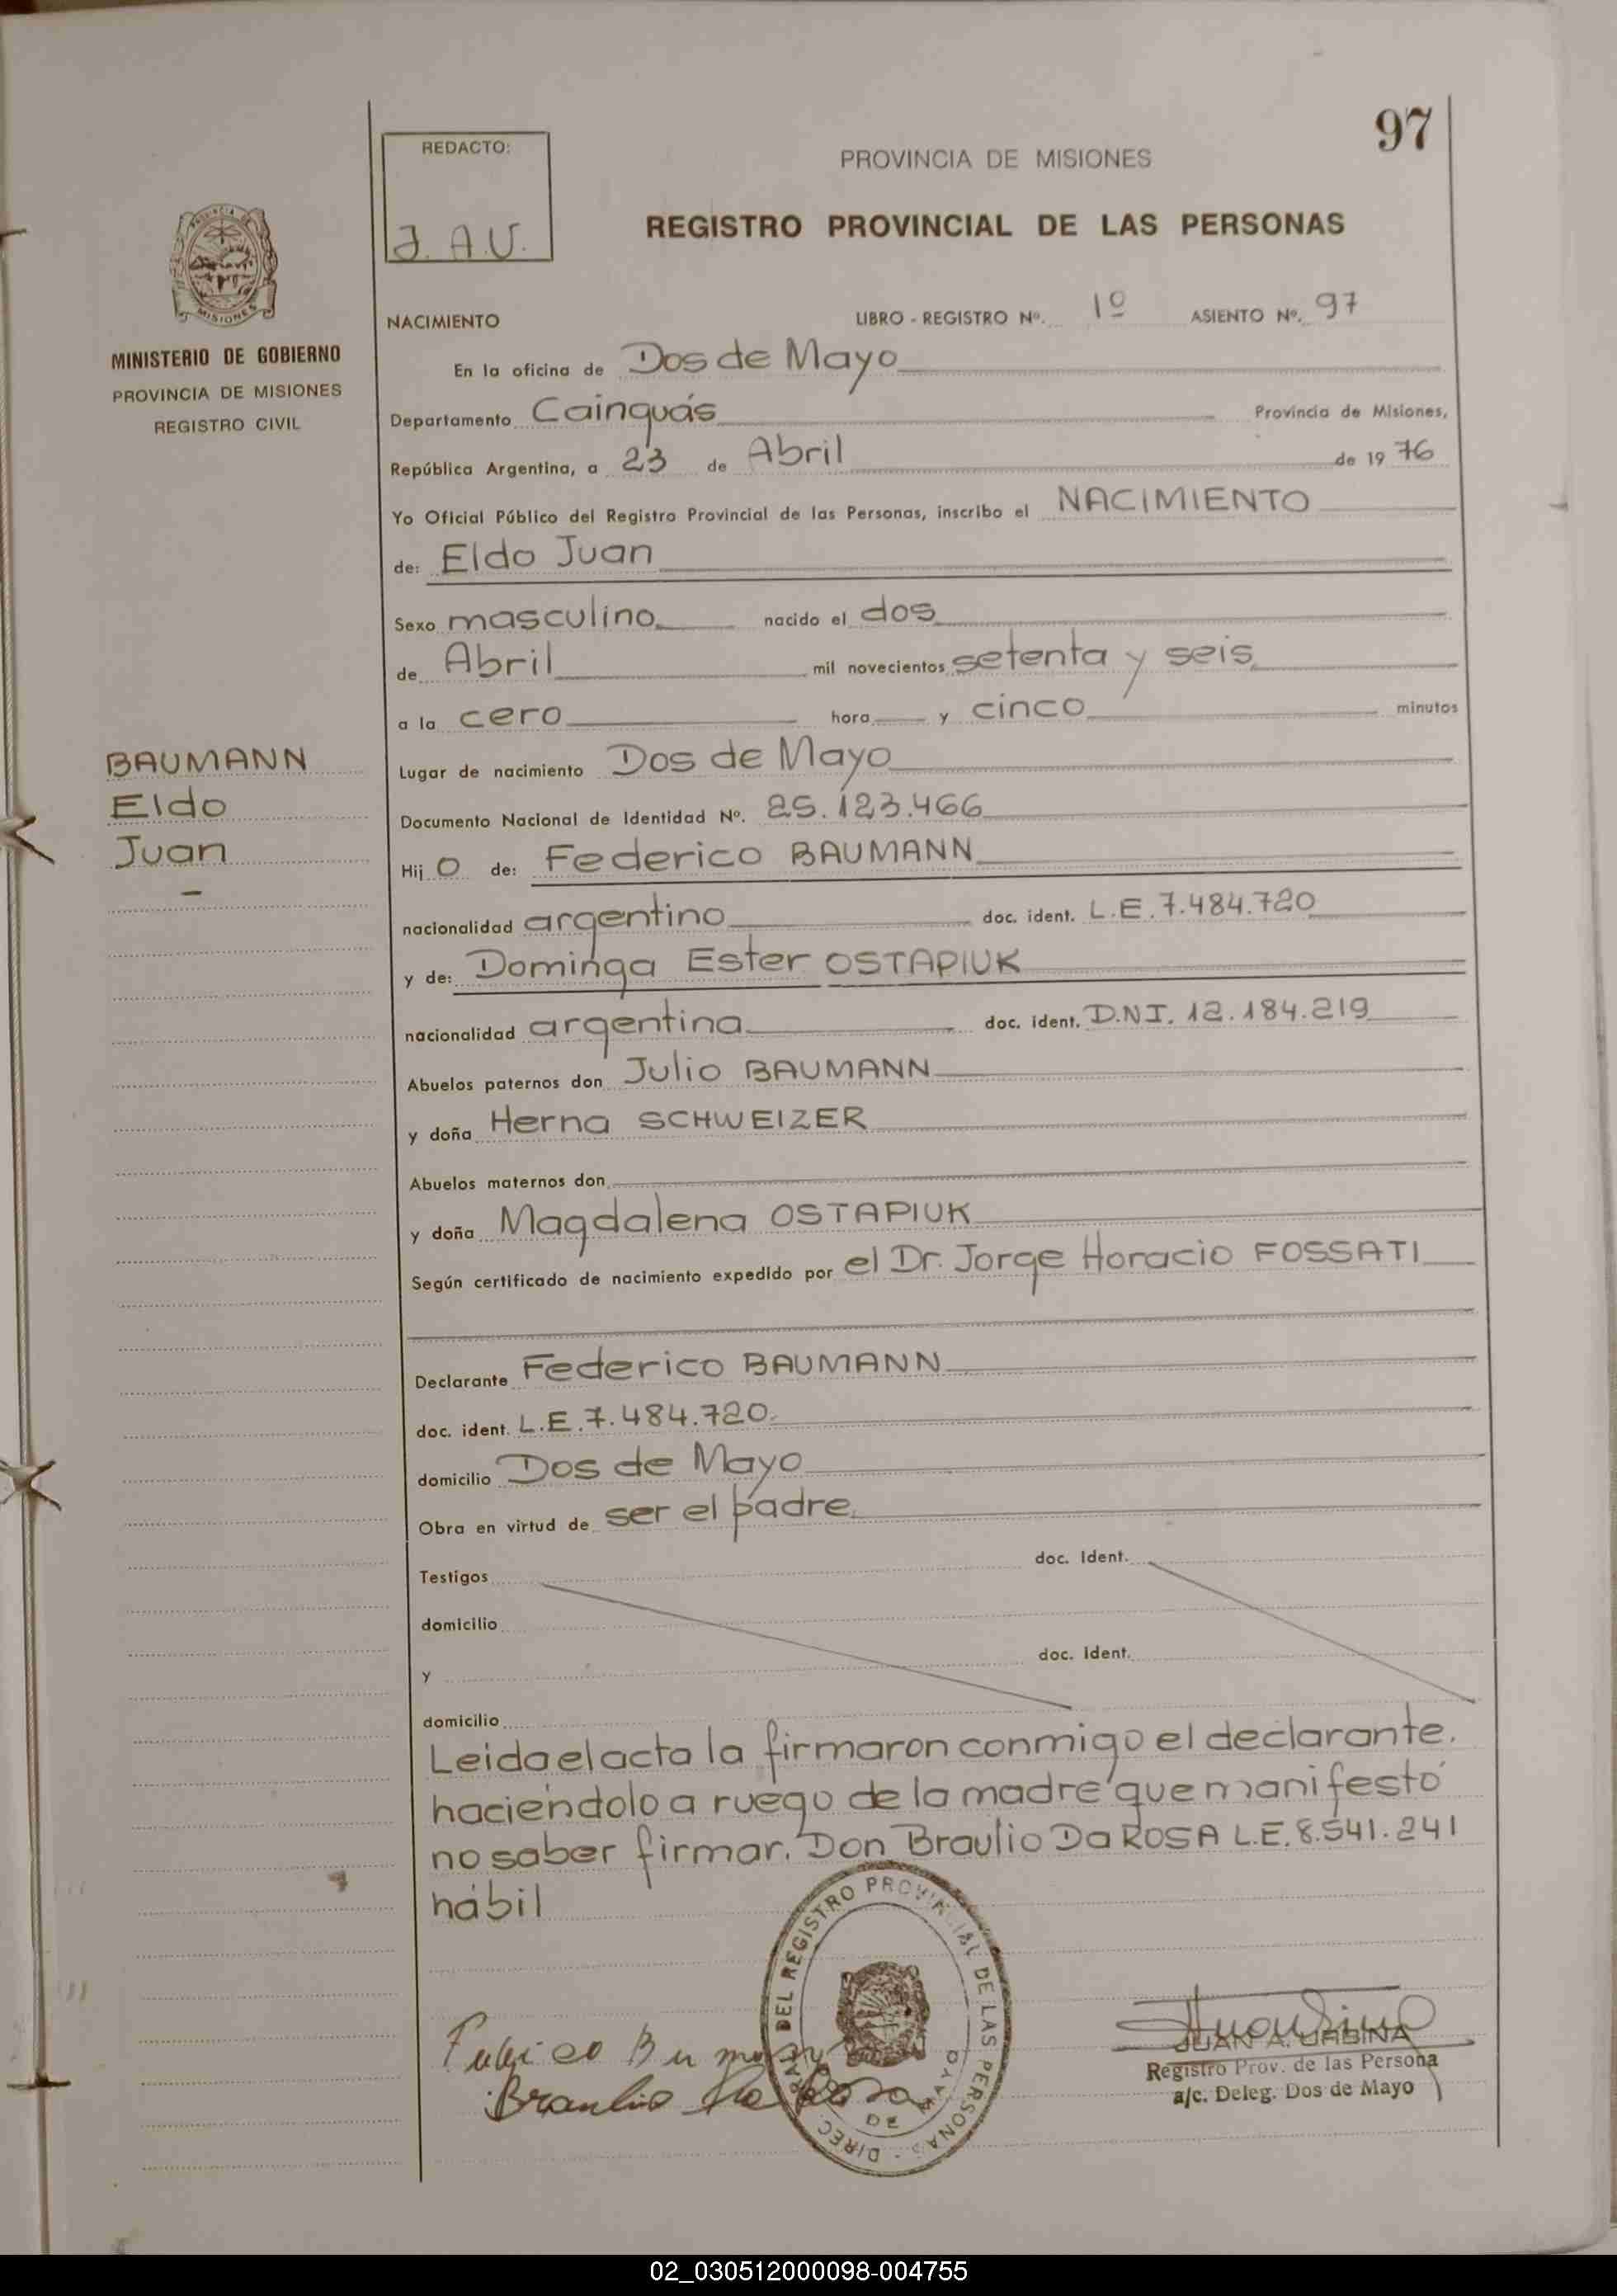 97
REDACTO:
J. A. U.
PROVINCIA DE MISIONES
REGISTRO PROVINCIAL DE LAS PERSONAS
MISIONES
MINISTERIO DE GOBIERNO
PROVINCIA DE MISIONES
REGISTRO CIVIL
NACIMIENTO LIBRO - REGISTRO Nº. 1º ASIENTO Nº. 97
En la oficina de Dos de Mayo
Departamento Cainguás Provincia de Misiones,
República Argentina, a 23 de Abril de 1976
Yo Oficial Público del Registro Provincial de las Personas, inscribo el NACIMIENTO
de: Eldo Juan
Sexo masculino nacido el dos
de Abril mil novecientos setenta y seis
a la cero hora y cinco minutos
BAUMANN
Eldo
Juan
Lugar de nacimiento Dos de Mayo
Documento Nacional de Identidad Nº. 25.123.466
Hijo de: Federico BAUMANN
nacionalidad argentino doc. ident. L.E. 7.484.720
y de: Dominga Ester OSTAPIUK
nacionalidad argentina doc. ident. D.N.I. 12.184.219
Abuelos paternos don Julio BAUMANN
y doña Herna SCHWEIZER
Abuelos maternos don
y doña Magdalena OSTAPIUK
Según certificado de nacimiento expedido por el Dr. Jorge Horacio FOSSATI
Declarante Federico BAUMANN
doc. ident. L.E. 7.484.720.
domicilio Dos de Mayo
Obra en virtud de ser el padre.
Testigos doc. Ident.
domicilio
y doc. Ident.
domicilio
Leida el acta la firmaron conmigo el declarante.
haciéndolo a ruego de la madre que manifestó
no saber firmar. Don Braulio Da ROSA L.E. 8.541.241
hábil
DIREC. GRAL. DEL REGISTRO PROVINCIAL DE LAS PERSONAS
DOS DE MAYO
Braulio Da Rosa
JUAN A. URBINA
Registro Prov. de las Persona
a/c. Deleg. Dos de Mayo
02_030512000098-004755